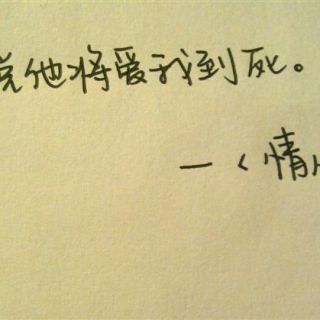 说他将爱我到死。
—〈情